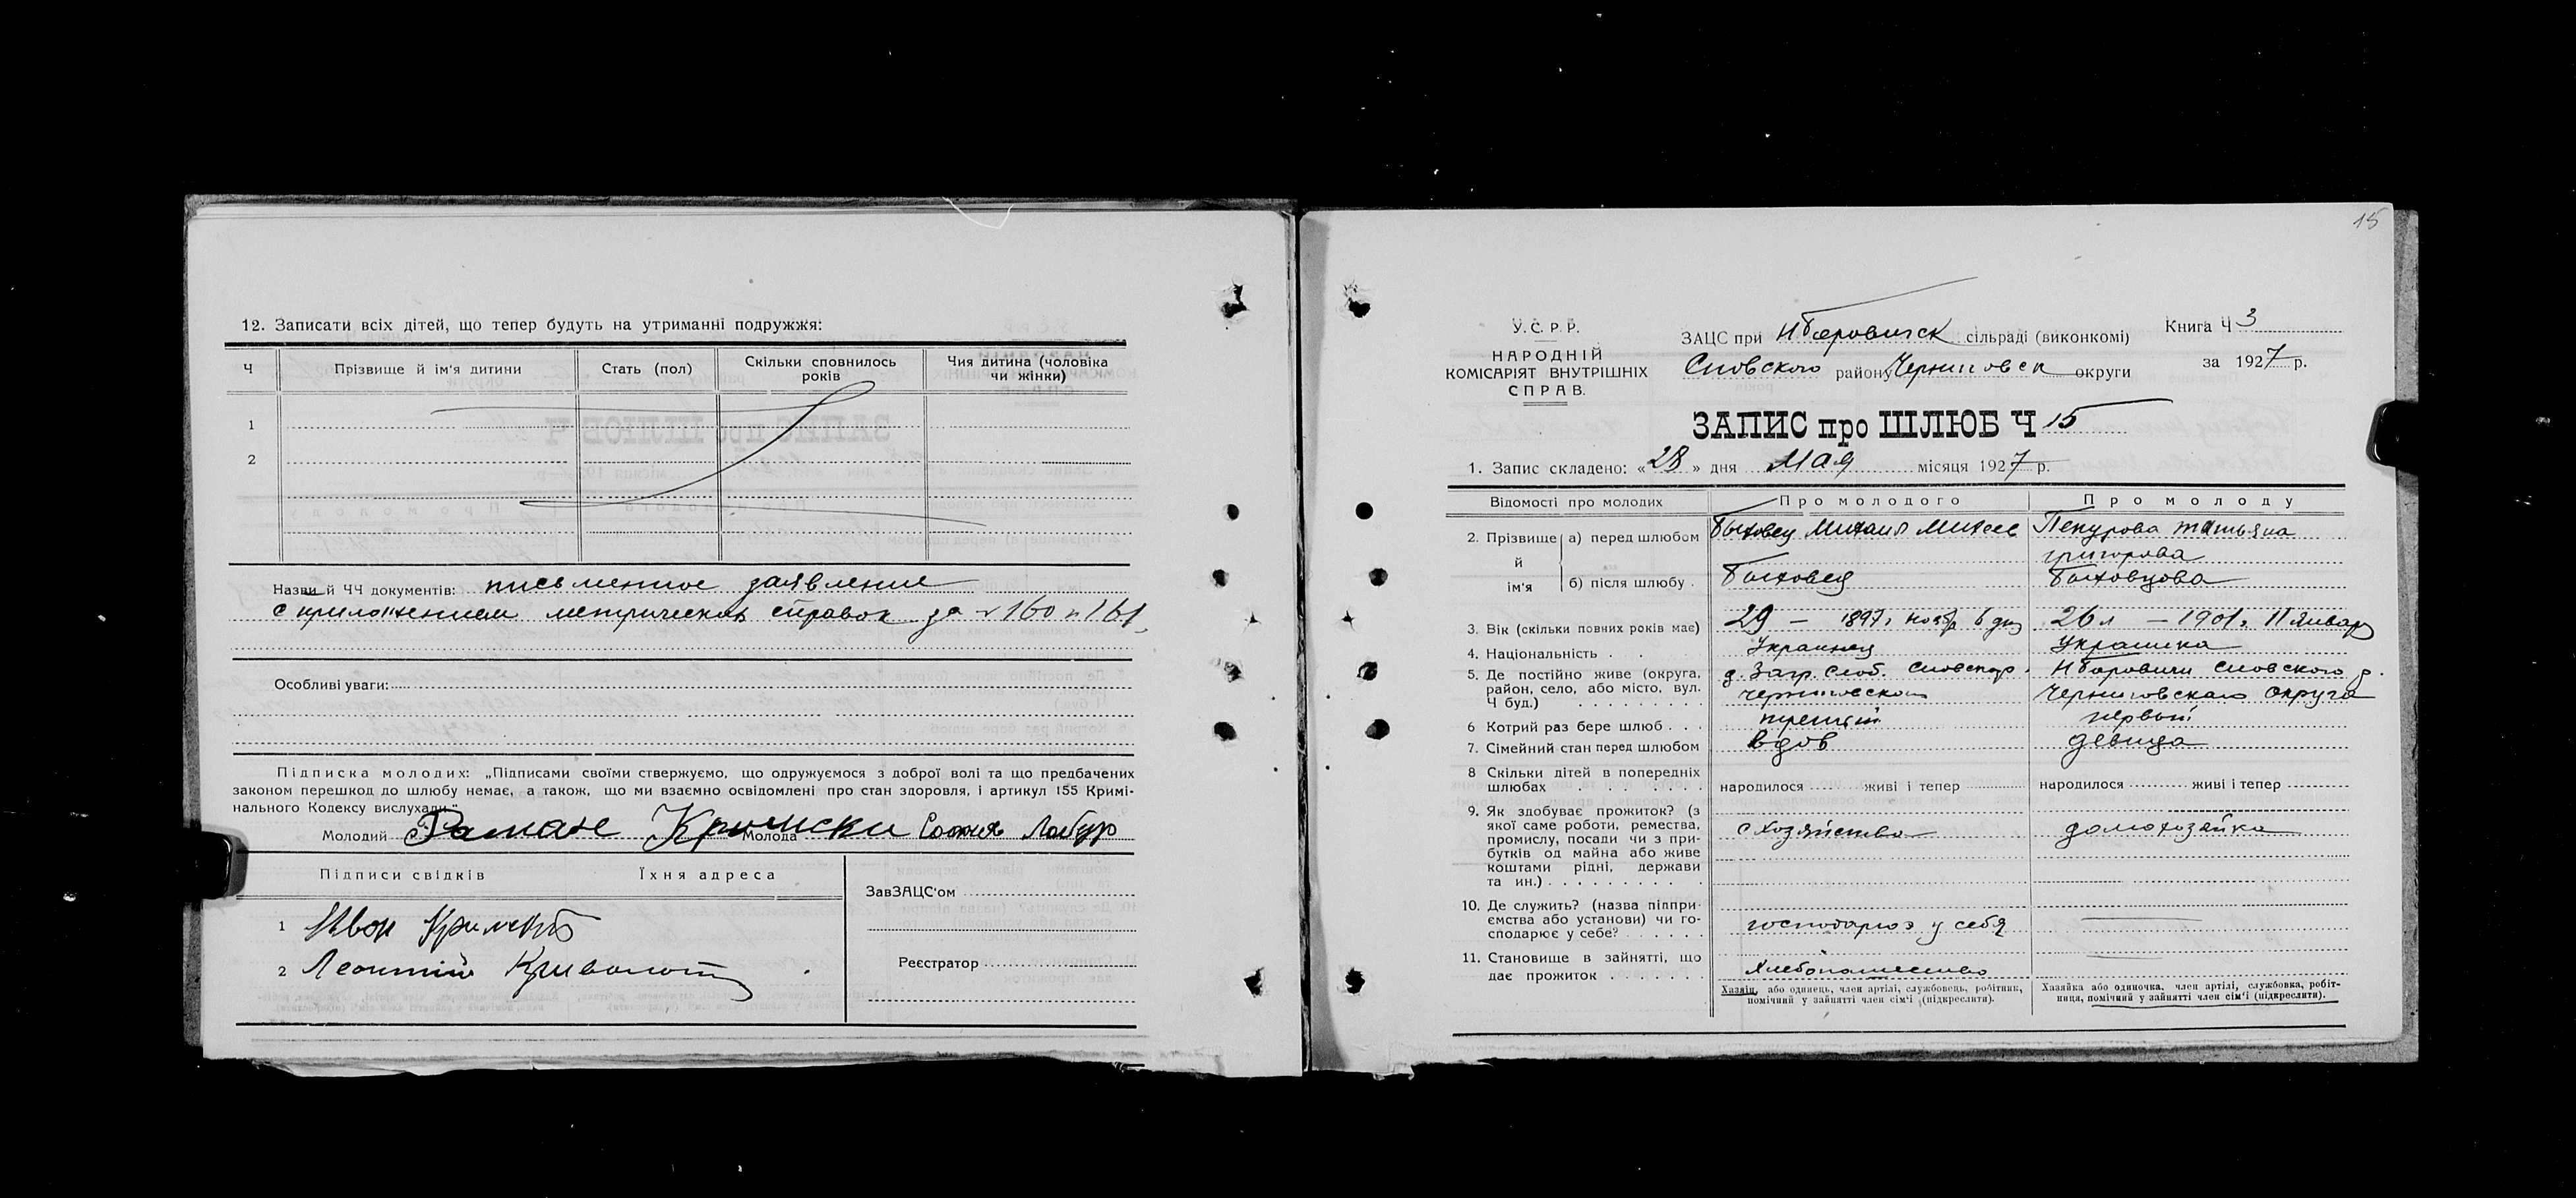 12. Записати всіх дітей, що тепер будуть на утриманні подружжя:
Ч
Прізвище й ім'я дитини
Стать (пол)
Скільки сповнилось років
Чия дитина (чоловіка чи жінки)
1
2
Назви й ЧЧ документів: письменное заявление
с приложением метрических справок за № 160 и 161
Особливі уваги:
Підписка молодих: „Підписами своїми стверджуємо, що одружуємося з доброї волі та що предбачених
законом перешкод до шлюбу немає, а також, що ми взаємно освідомлені про стан здоровля, і артикул 155 Кримі-
нального Кодексу вислухали."
Молодий Роман Кримски Молода София Лобур
Підписи свідків
Їхня адреса
1 Иван
2 Леонтий
ЗавЗАЦС'ом
Реєстратор
15
У. С. Р. Р.
НАРОДНІЙ
КОМІСАРІЯТ ВНУТРІШНІХ
СПРАВ.
ЗАЦС при НБоровичск сільраді (виконкомі)
Сновского району Черниговск округи
Книга Ч 3
за 1927 р.
ЗАПИС про ШЛЮБ Ч 15
1. Запис складено: «28» дня мая місяця 1927 р.
Відомості про молодих
Про молодого
Про молоду
2. Прізвище й ім'я
а) перед шлюбом
Быховец Михаил Михеев
Пекурова Татьяна
григорова
б) після шлюбу
Быховец
Быховцова
3. Вік (скільки повних років має)
29 — 1897 г нояб 6 дня
26 л — 1901 г. 11 январ
4. Національність
Украинец
Украинка
5. Де постійно живе (округа,
район, село, або місто, вул.
Ч буд.)
д. Загр. Слоб. Сновск р.
Черниговской
НБоровичи Сновского р.
Черниговскаго округа
6 Котрий раз бере шлюб
третий
первый
7. Сімейний стан перед шлюбом
вдов
девица
8 Скільки дітей в попередніх
шлюбах
народилося живі і тепер
народилося живі і тепер
9. Як здобуває прожиток? (з
якої саме роботи, ремества,
промислу, посади чи з при-
бутків од майна або живе
коштами рідні, держави
та ин.)
с хозяйства
домохозяйка
10. Де служить? (назва підпри-
ємства або установи) чи го-
сподарює у себе?
господарює у себя
11. Становище в зайнятті, що
дає прожиток
хлебопашество
Хазяїн, або одинець, член артілі, службовець, робітник,
помічний у зайнятті член сім'ї (підкреслити).
Хазяйка або одиночка, член артілі, службовка, робіт-
ниця, помічний у зайнятті член сім'ї (підкреслити).